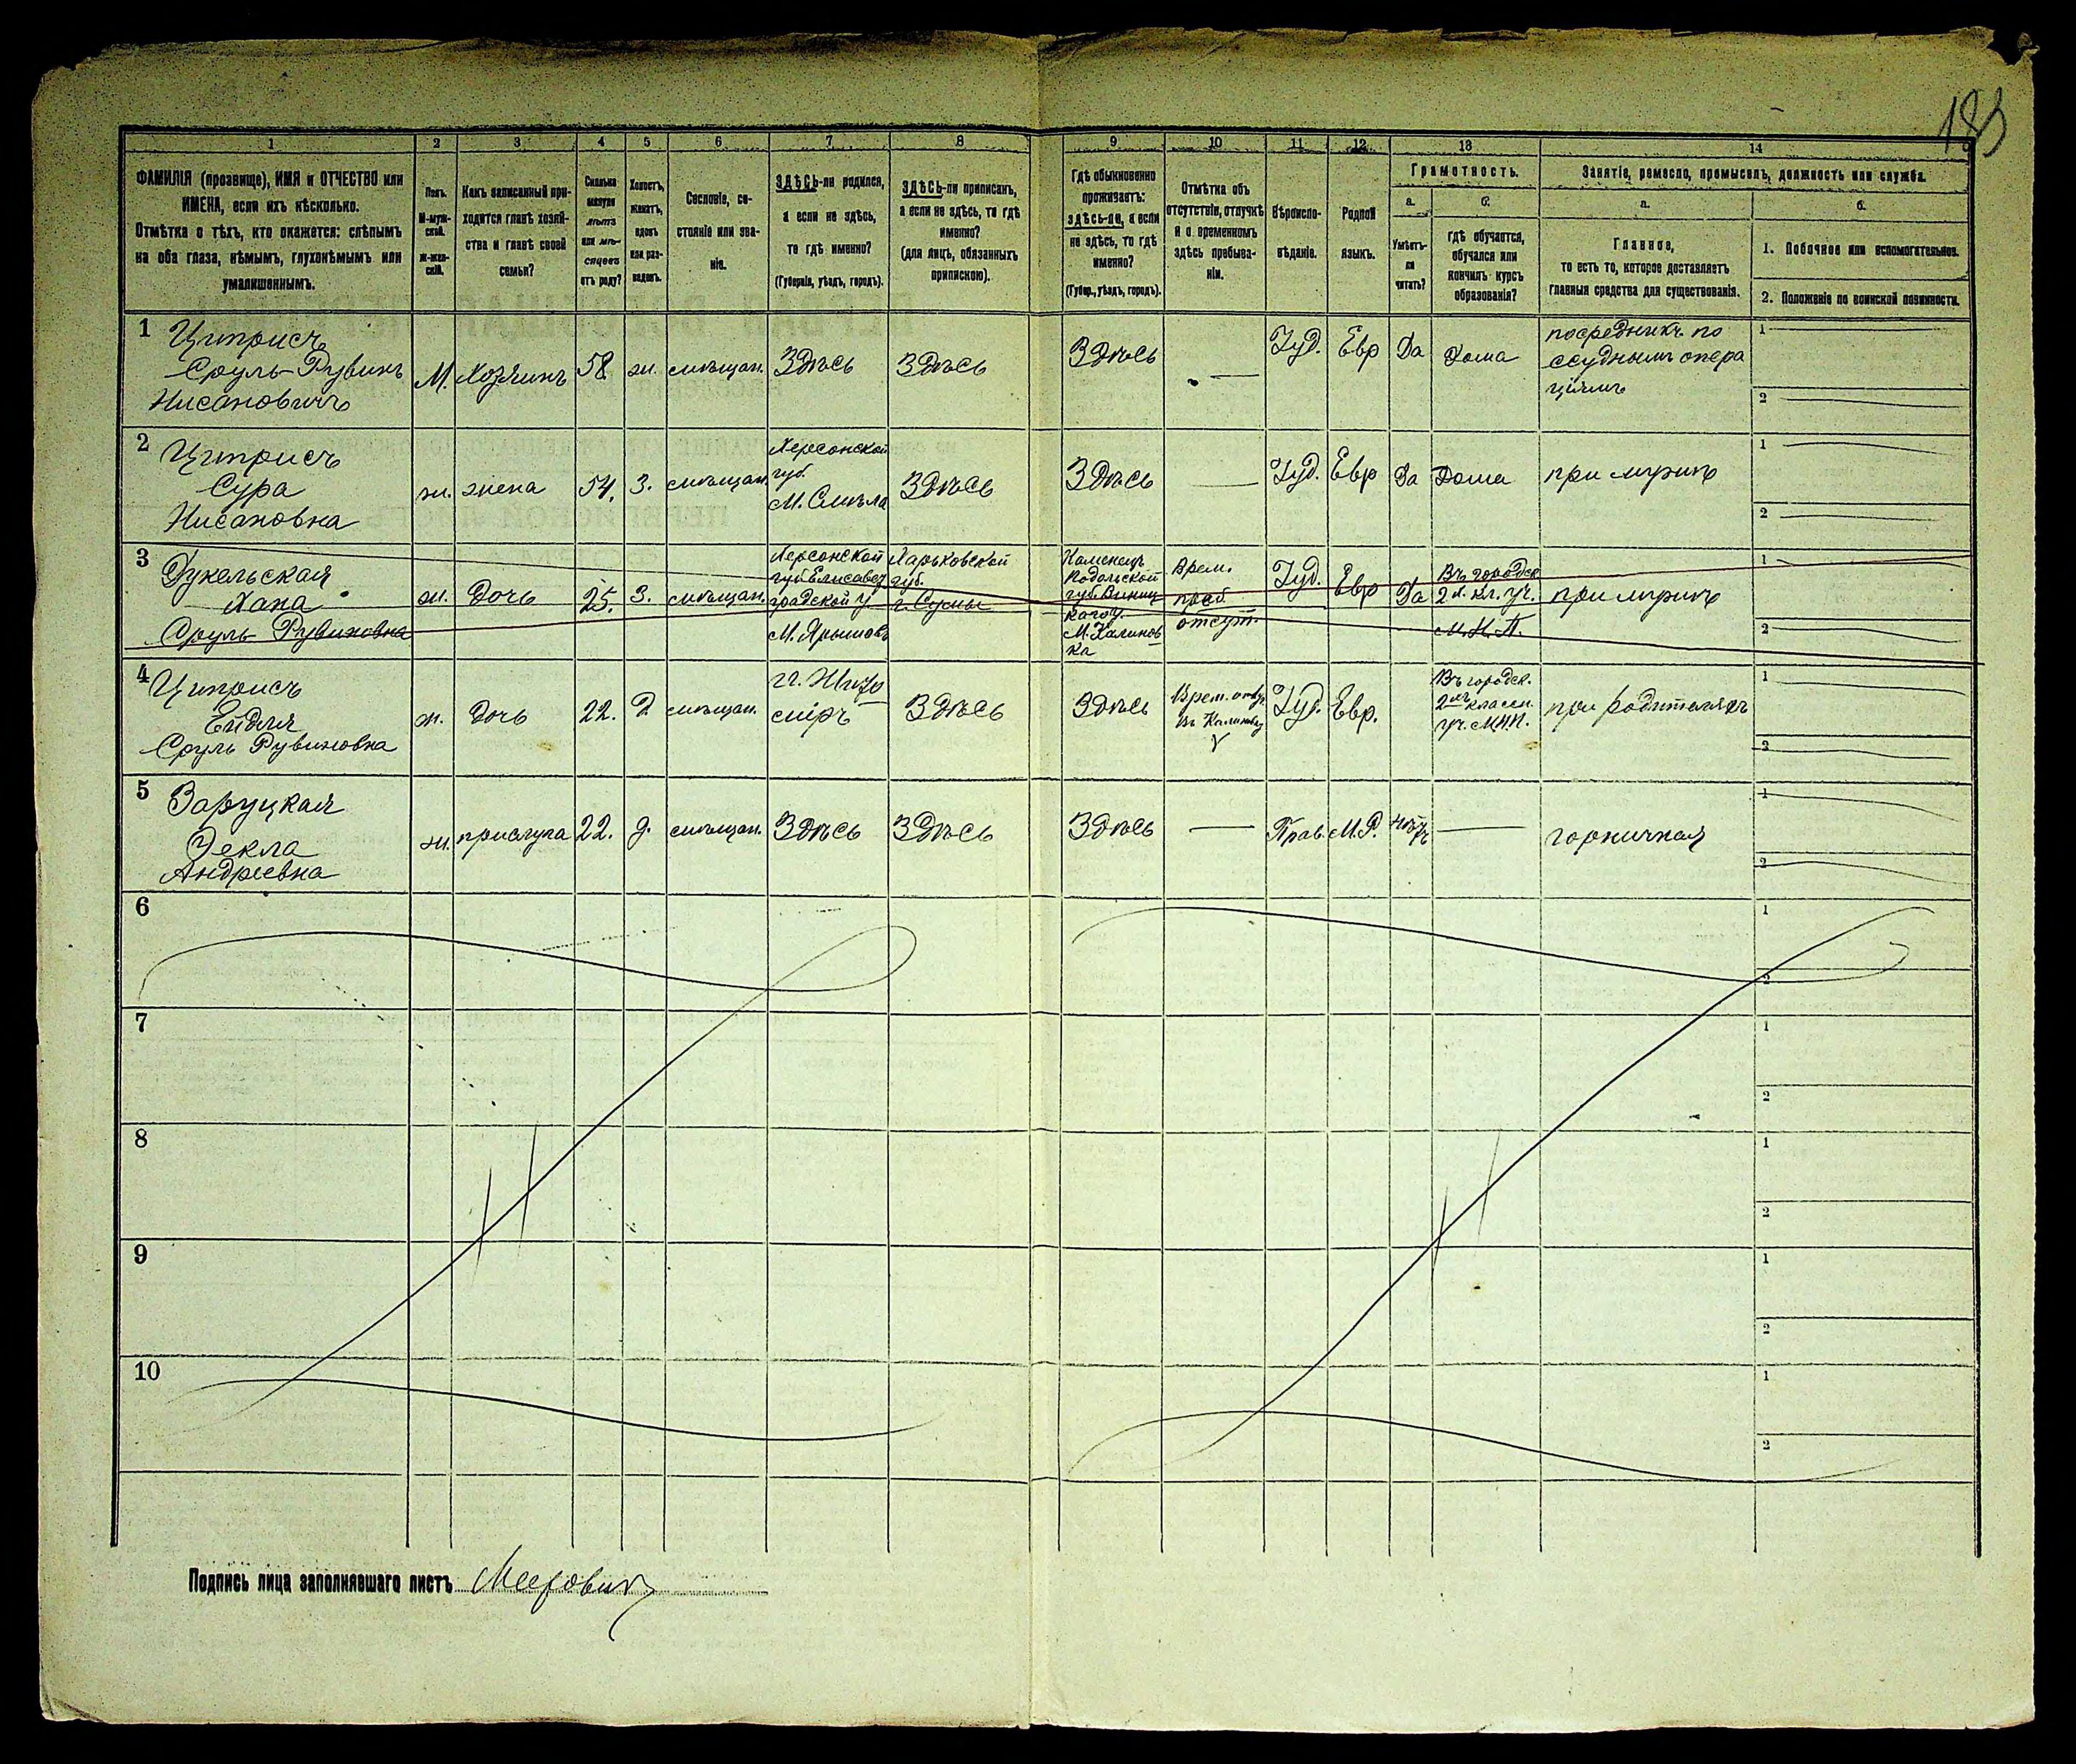 185
1
2
3
4
5
6
7
8
9
10
11
12
13
14
ФАМИЛІЯ (прозвище), ИМЯ и ОТЧЕСТВО или
ИМЕНА, если ихъ нѣсколько.
Отмѣтка о тѣхъ, кто окажется: слѣпымъ
на оба глаза, нѣмымъ, глухонѣмымъ или
умалишеннымъ.
Полъ.
М-муж-
ской.
Ж-жен-
скій.
Какъ записанный при-
ходится главѣ хозяй-
ства и главѣ своей
семьи?
Сколько
минуло
лѣтъ
или мѣ-
сяцевъ
отъ роду?
Холостъ,
женатъ,
вдовъ
или раз-
веденъ.
Сословіе, со-
стояніе или зва-
ніе.
ЗДѢСЬ-ли родился,
а если не здѣсь,
то гдѣ именно?
(Губернія, уѣздъ, городъ).
ЗДѢСЬ-ли приписанъ,
а если не здѣсь, то гдѣ
именно?
(для лицъ, обязанныхъ
припискою).
Гдѣ обыкновенно
проживаетъ:
здѣсь-ли, а если
не здѣсь, то гдѣ
именно?
(Губер., уѣздъ, городъ).
Отмѣтка объ
отсутствіи, отлучкѣ
и о временномъ
здѣсь пребыва-
ніи.
Вѣроиспо-
вѣданіе.
Родной
языкъ.
Грамотность.
а.
Умѣетъ-
ли
читать?
б.
гдѣ обучается,
обучался или
кончилъ курсъ
образованія?
Занятіе, ремесло, промыселъ, должность или служба.
а.
Главное,
то есть то, которое доставляетъ
главныя средства для существованія.
б.
1. Побочное или вспомогательное.
2. Положеніе по воинской повинности.
1 Цитрисъ
Сруль-Рувинъ
Нисановичъ
М.
Хозяинъ
58
ж.
мѣщан.
Здѣсь
Здѣсь
Здѣсь
Іуд.
Евр
Да
Дома
посредникъ по
ссуднымъ опера
ціямъ
1
2
2 Цитрисъ
Сура
Нисановна
ж.
жена
54.
З.
мѣщан.
Херсонской
губ.
М. Смѣла
Здѣсь
Здѣсь
Іуд.
Евр
Да
Дома
при мужѣ
1
2
3 Дукельская
Хана
Сруль-Рувиновна
ж.
Дочь
25.
З.
мѣщан.
Херсонской
губ Елисавет
градской у
Харьковской
губ.
г. Сумы
Каменецъ
Подольской
губ. Винниц
каго у.
М. Калинов
ка
Врем.
преб.
отсут.
Іуд.
Евр
Да
Въ городск.
2 х. кл. уч.
М. Н. П.
при мужѣ
1
2
4 Цитрисъ
Ейдля
Сруль Рувиновна
ж.
Дочь
22.
Д
мѣщан.
Здѣсь
Здѣсь
Іуд.
Евр.
Въ городск.
2хъ классн.
уч. М.Н.П.
при родителяхъ
1
2
5 Заруцкая
Ѳекла
Андреевна
ж.
прислуга
22.
д.
мѣщан.
Здѣсь
Здѣсь
Здѣсь
Прав.
М.Р.
нѣтъ
горничная
1
2
6
1
2
7
1
2
8
1
2
9
1
2
10
1
2
Подпись лица заполнявшаго листъ